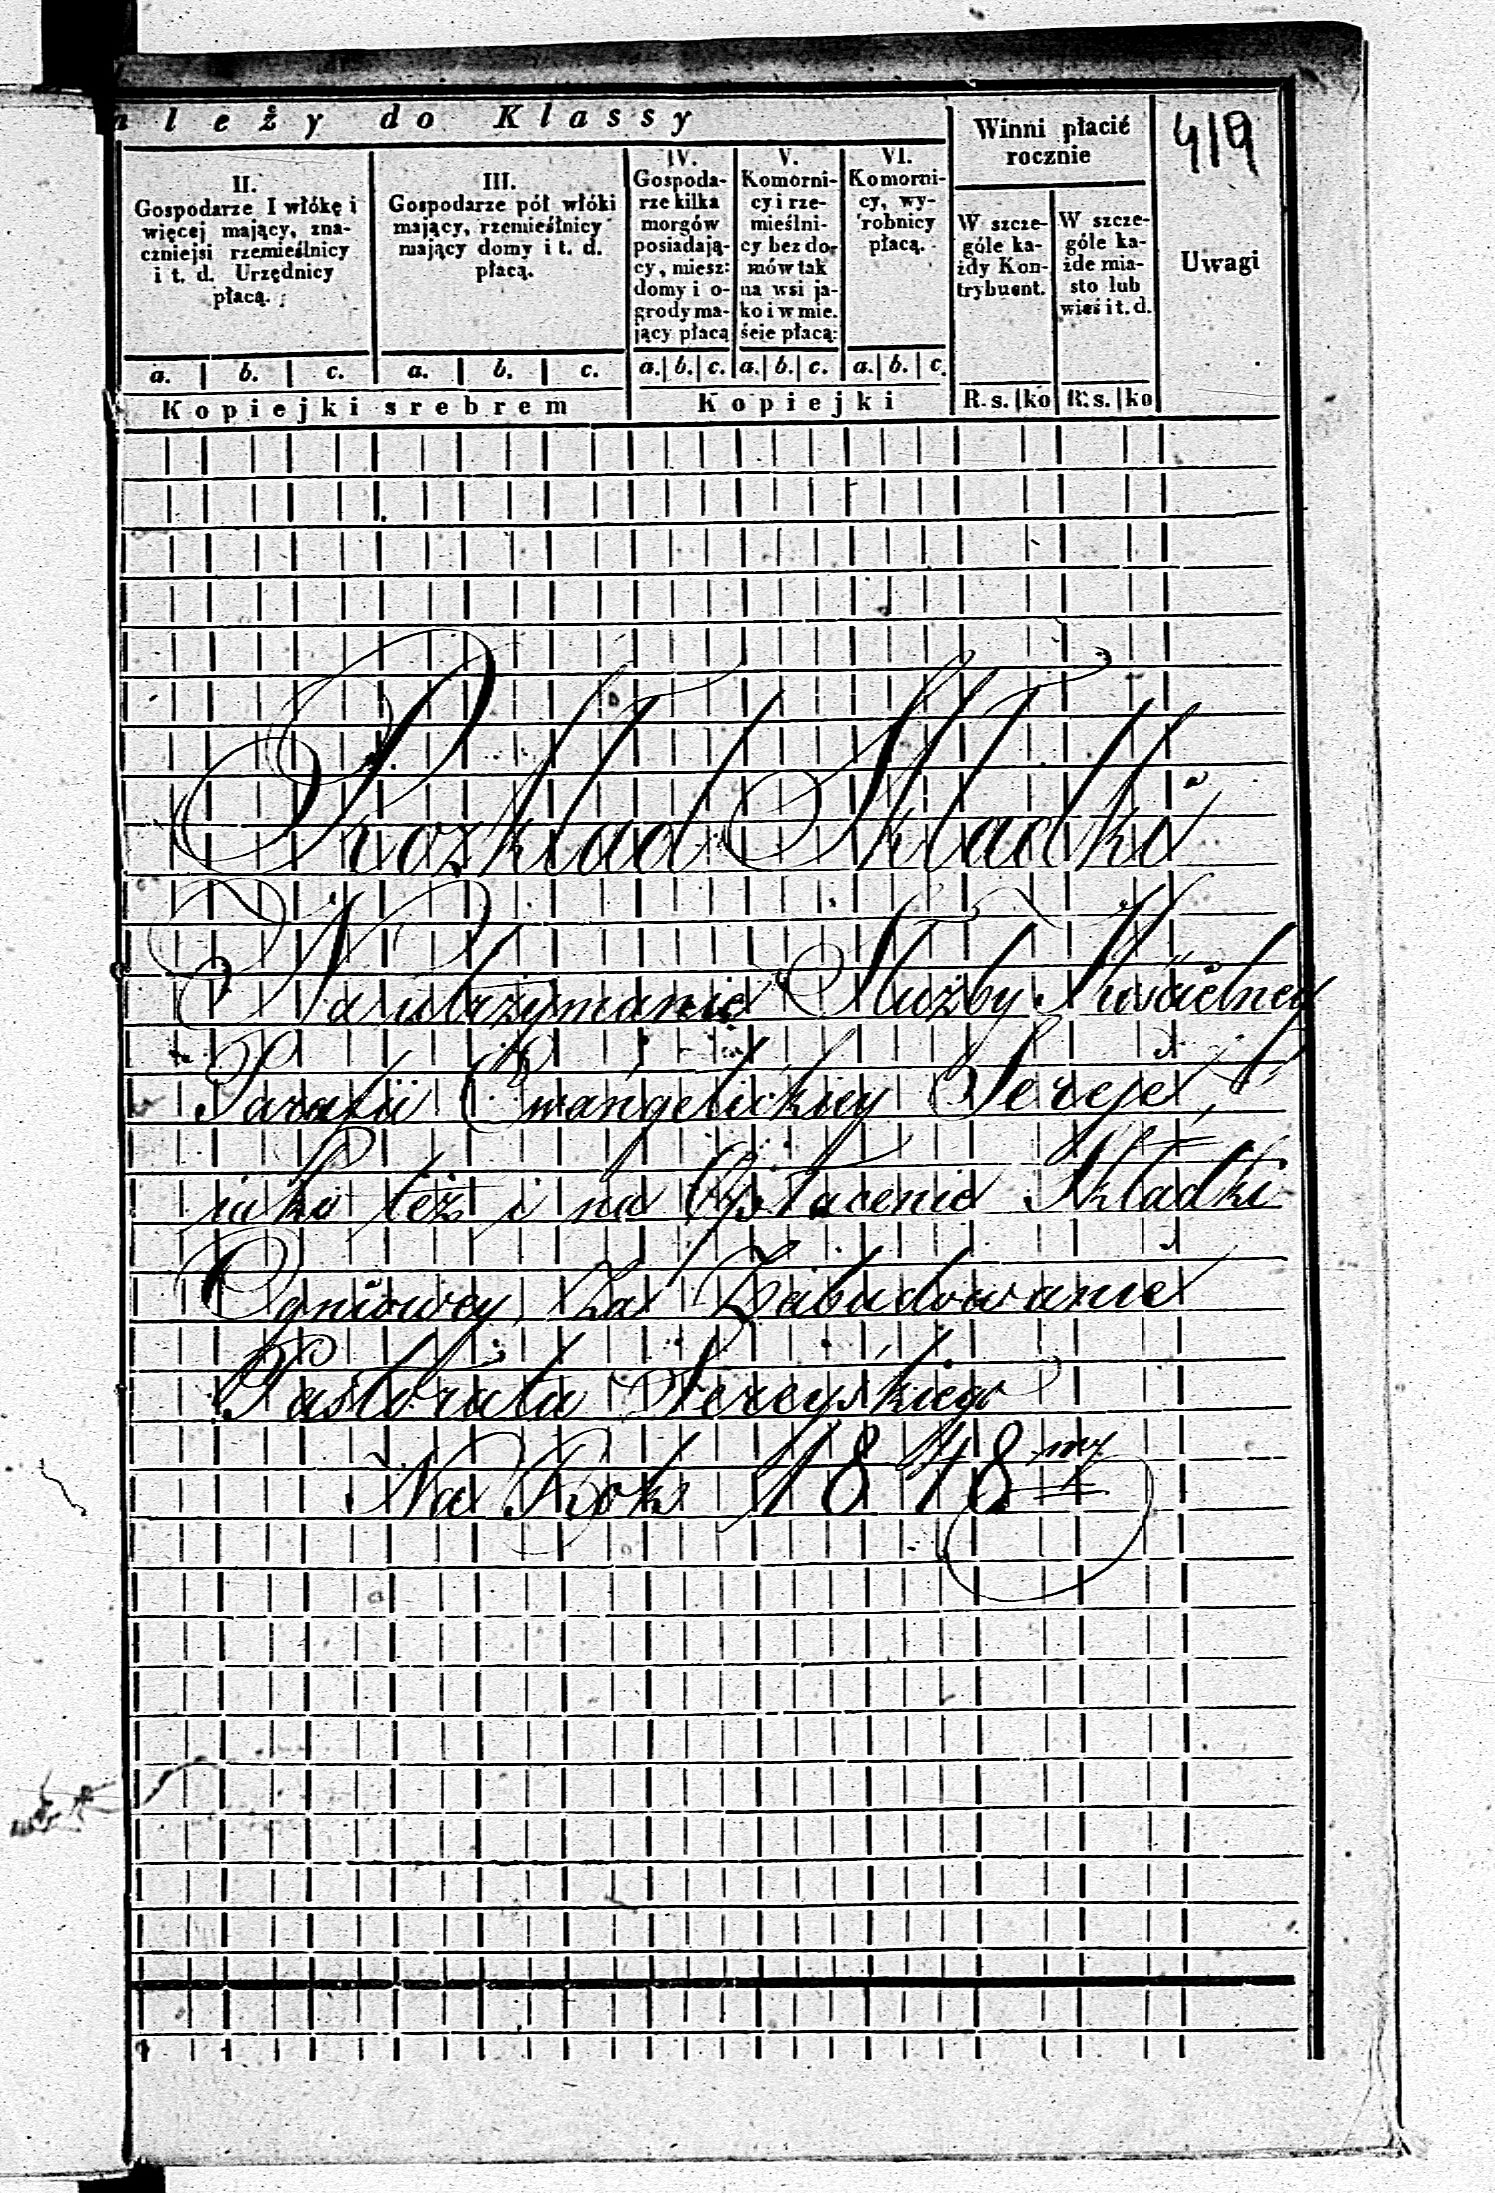 ależy do Klassy
Winni płacić
rocznie
419
II.
Gospodarze I włókę i
więcej mający, zna-
czniejsi rzemieślnicy
i t. d. Urzędnicy
płacą.
III.
Gospodarze pół włóki
mający, rzemieślnicy
mający domy i t. d.
płacą.
IV.
Gospoda-
rze kilka
morgów
posiadają-
cy, miesz:
domy i o-
grody ma-
jący płacą
V.
Komorni-
cy i rze-
mieślni-
cy bez do-
mów tak
na wsi ja-
ko i w mie.
ście płacą:
VI.
Komorni-
cy, wy-
robnicy
płacą.
W szcze-
góle ka-
żdy Kon-
trybuent.
W szcze-
góle ka-
żde mia-
sto lub
wieś i t. d.
Uwagi
a. b. c. a. b. c. a. b. c. a. b. c. a. b. c.
Kopiejki srebrem Kopiejki R. s. ko R. s. ko
Rozkład Składki
Na utrzymanie Służby Kościelney
Parafii Ewangelickiey Sereje,
iako też i na Opłacenie Składki
Ogniowey, Za Zabudowanie
Pastoratu Sereyskiego
Na Rok 1848 my